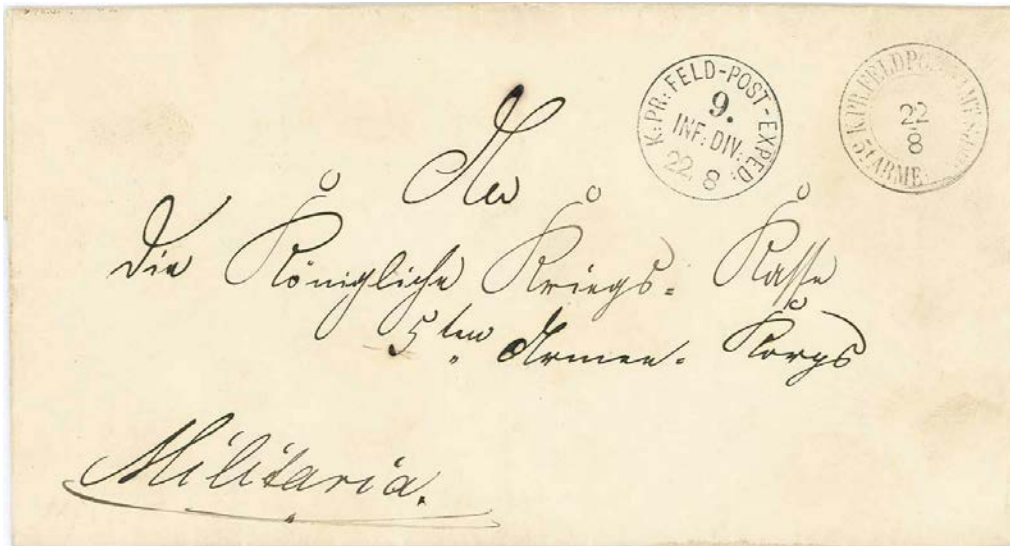 K: PR: FELD-POST-EXPED:
9.
INF: DIV:
22 8
K. PR. FELDPO
5t ARME
22
8
An
die Königliche Kriegs- Kasse
5ten Armee- Korps
Militaria.